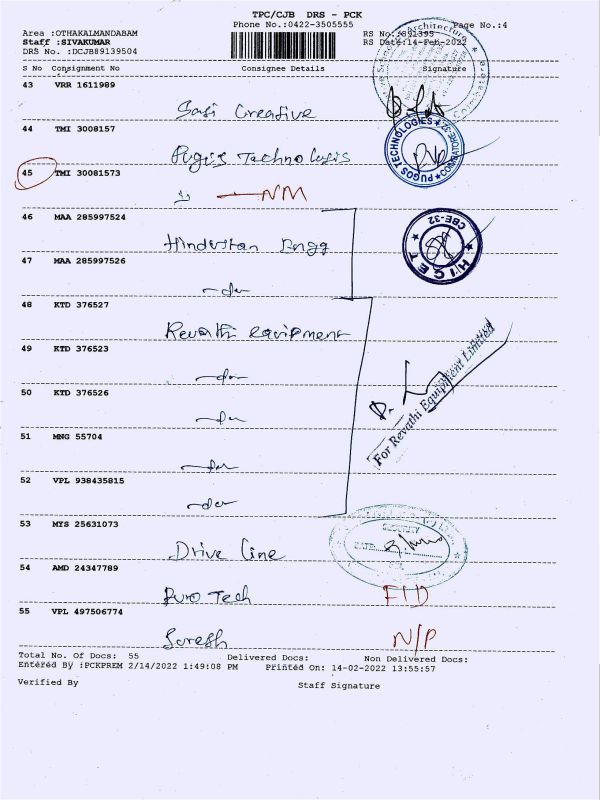 TPC/CJB DRS - PCK
Phone No.:0422-3505555 Page No.:4
Area :OTHAKALMANDABAM RS No.:891395
Staff :SIVAKUMAR RS Date:14-Feb-2022
DRS No. :DCJB89139504
S No Consignment No Consignee Details Signature
43 VRR 1611989
Sasi Creative
44 TMI 3008157
Pugos Technologis
PUGOS TECHNOLOGIES COIMBATORE-32
45 TMI 30081573
NM
46 MAA 285997524
Hindustan Engg
HICET CBE-32
47 MAA 285997526
-do-
48 KTD 376527
Revathi equipment
49 KTD 376523
-do-
50 KTD 376526
-do-
For Revathi Equipment Limited
51 MNG 55704
-do-
52 VPL 938435815
-do-
53 MYS 25631073
Drive Line
SECURITY
54 AMD 24347789
Euro Tech
55 VPL 497506774
Suresh N/P
Total No. of Docs: 55 Delivered Docs: Non Delivered Docs:
Entered By :PCKPREM 2/14/2022 1:49:08 PM Printed On: 14-02-2022 13:55:57
Verified By Staff Signature